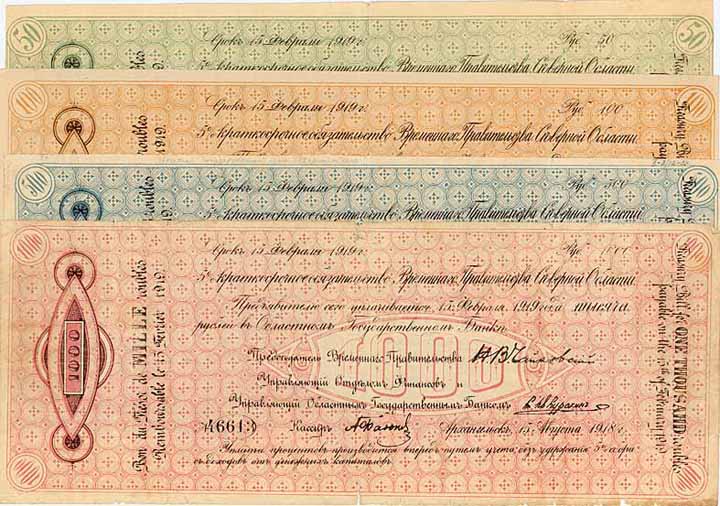 50
Срокъ 15 Февраля 1919 г.
Руб. 50
50
5% краткосрочное обязательство Временнаго Правительства Сѣверной Области
100
Срокъ 15 Февраля 1919 г.
Руб. 100
100
5% краткосрочное обязательство Временнаго Правительства Сѣверной Области
500
Срокъ 15 Февраля 1919 г.
Руб. 500
500
5% краткосрочное обязательство Временнаго Правительства Сѣверной Области
1000
Срокъ 15 Февраля 1919 г.
Руб. 1000
1000
5% краткосрочное обязательство Временнаго Правительства Сѣверной Области
Предъявителю сего уплачивается 15 Февраля 1919 года тысяча
рублей въ Областномъ Государственномъ Банкѣ.
1000
Предсѣдатель Временнаго Правительства Н. В. Чайковскій
Управляющій Отдѣломъ Финансовъ и
Управляющій Областнымъ Государственнымъ Банкомъ
46613
Кассиръ
Архангельскъ, 15 Августа 1918 г.
Уплата процентовъ производится впередъ путемъ учета, безъ удержанія 5% сбора
съ доходовъ отъ денежныхъ капиталовъ.
1000
1000
1000
Bon du Trésor de MILLE roubles
Remboursable le 15 Février 1919.
Treasury Bill for ONE THOUSAND roubles
payable on the 15th of February 1919